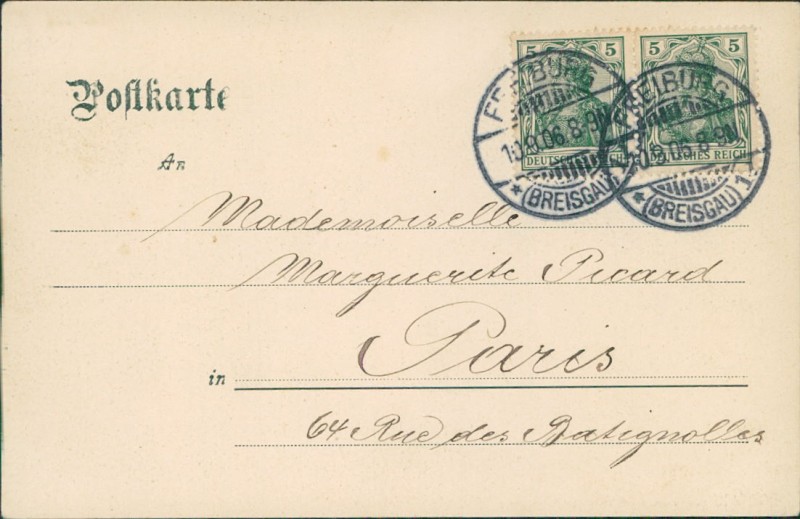 5 5 5 5
DEUTSCHES REICH DEUTSCHES REICH
FREIBURG FREIBURG
10.8.06.8-9N 10.8.06.8-9N
* (BREISGAU) 1 * (BREISGAU) 1
Postkarte
An
Mademoiselle
Marguerite Picard
in Paris
64 Rue des Batignolles